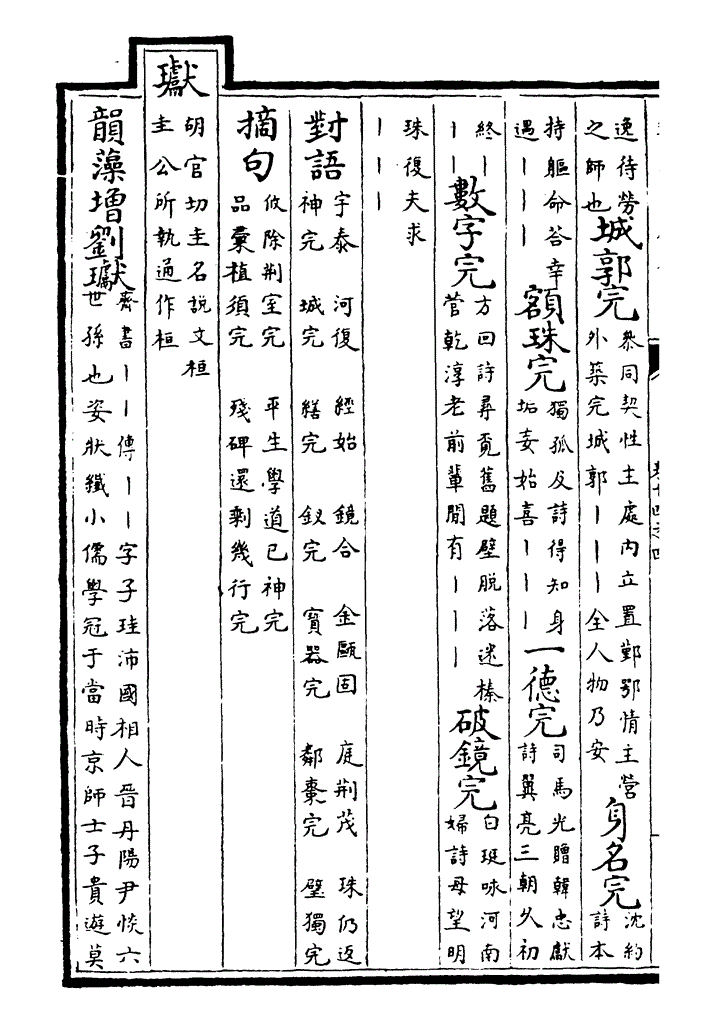 逸待勞之師也 城郭完 參同契性主處內立置鄞鄂情主營外築完城郭丨丨丨全人物乃安 身名完 沈約詩本
持軀命答幸遇丨丨丨 額珠完 獨孤及詩得知身垢妄始喜丨丨丨 一德完 司馬光贈韓忠獻詩翼亮三朝久初
終丨丨丨 數字完 方回詩尋覓舊題壁脫落迷榛菅乾淳老前輩間有丨丨丨 破鏡完 白珽咏河南婦詩母望明
珠復夫求丨丨丨
對語 宇泰 神完 河復 城完 經始 繕完 鏡合 釵完 金甌固 寳器完 庭荆茂 鄰棗完 珠仍返 璧獨完
摘句 攸除荆室完 品彚植須完 平生學道已神完 殘碑還剩幾行完
瓛 胡官切圭名說文桓圭公所執通作桓
韻藻增劉瓛 齊書丨丨傳丨丨字子珪沛國相人晉丹陽尹惔六世孫也姿狀纖小儒學冠于當時京師士子貴遊莫